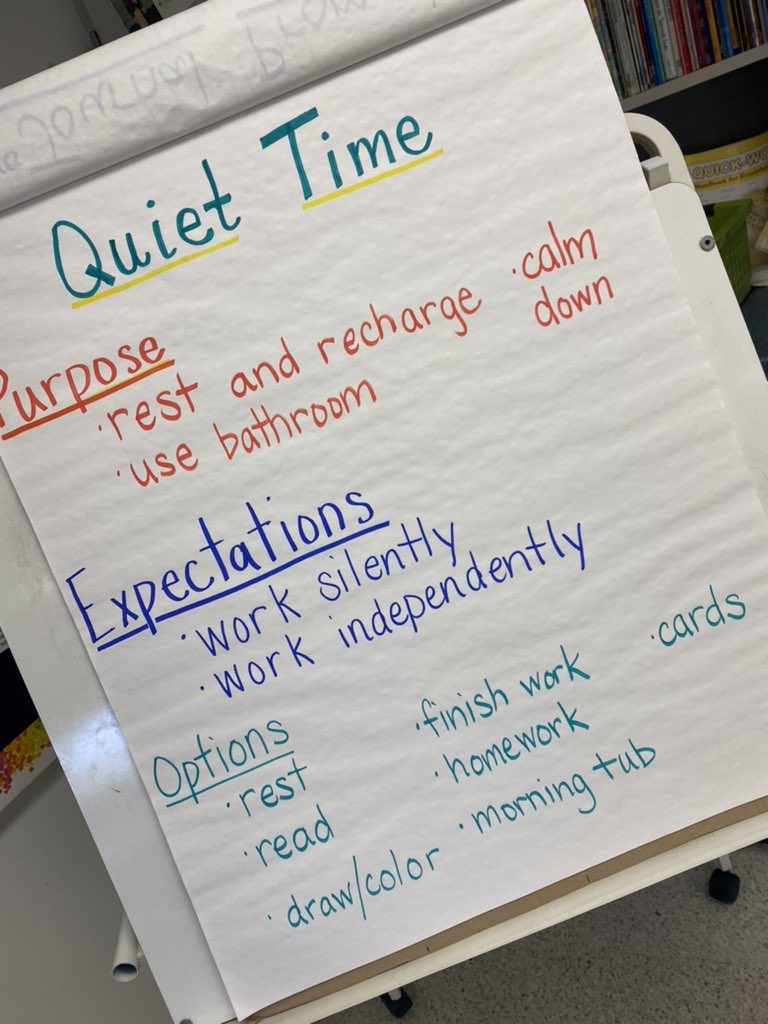 Quiet Time
Purpose
·rest and recharge
·calm down
·use bathroom
Expectations
·work silently
·work independently
Options
·rest
·read
·draw/color
·finish work
·homework
·morning tub
·cards
QUICK-WO
Handbook for Everyda